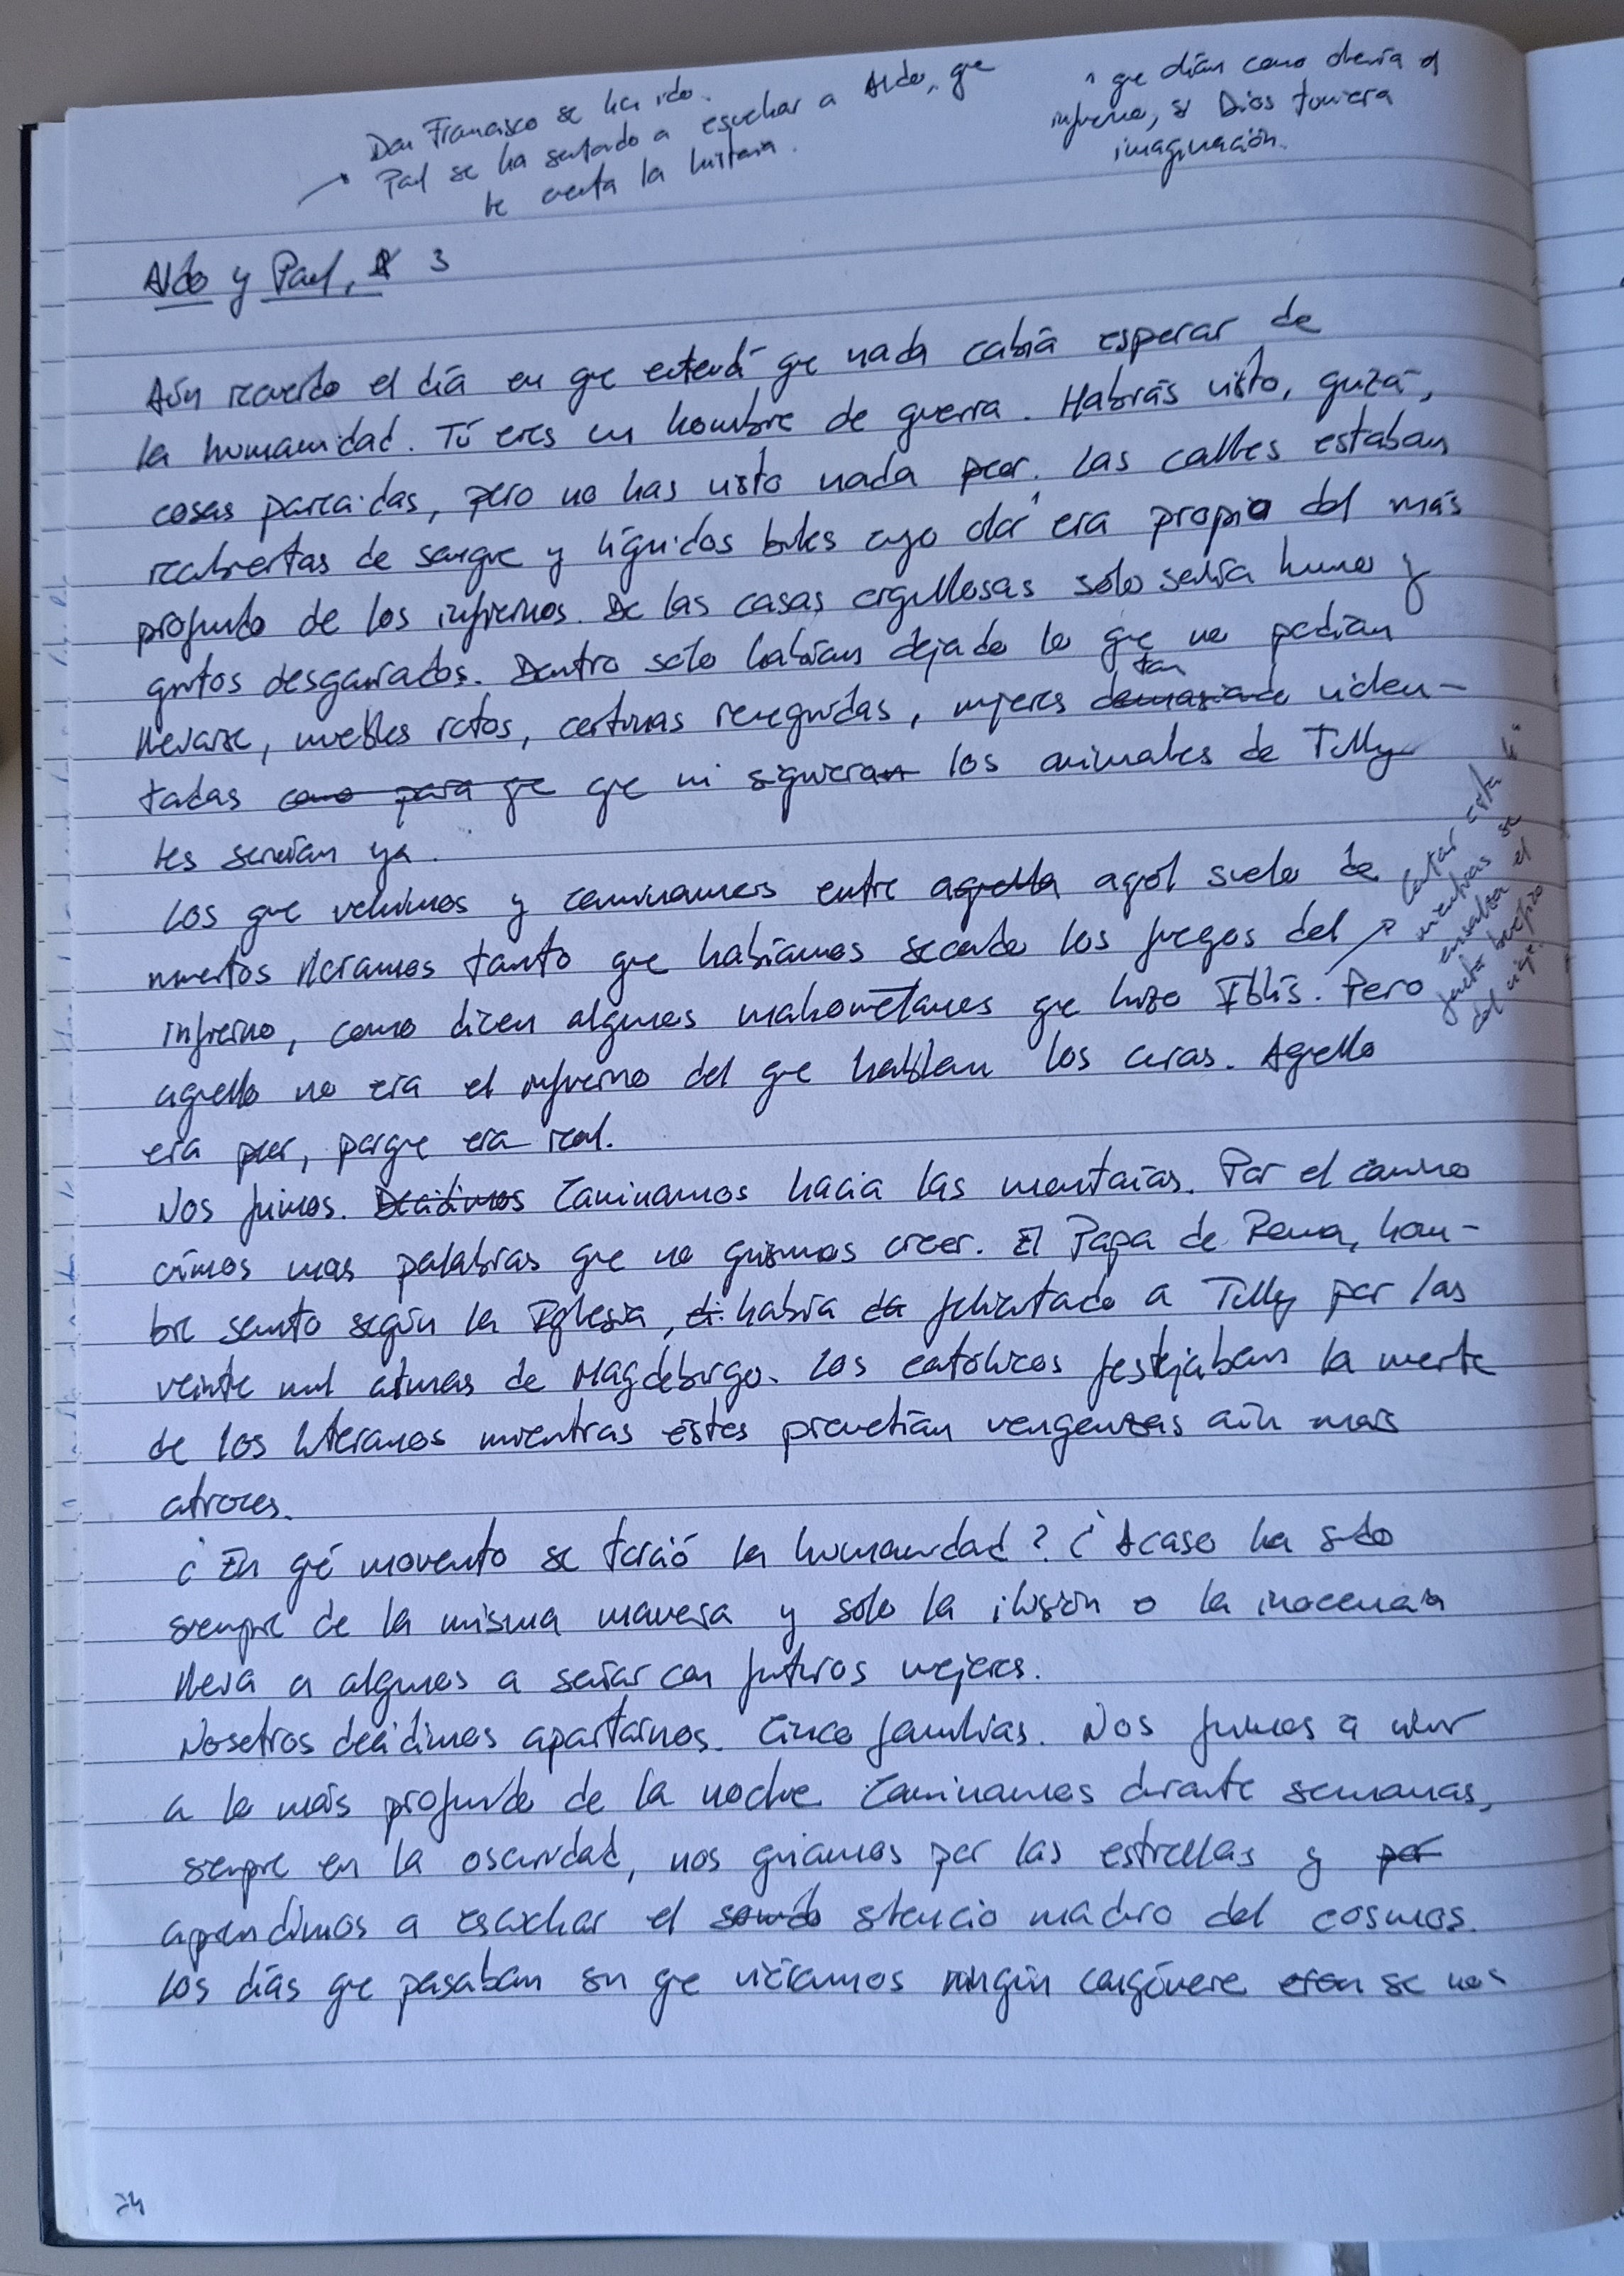 Don Francisco se ha ido.
Paul se ha sentado a escuchar a Aldo, que
le cuenta la historia.
que dirán como olería el
infierno, si Dios tuviera
imaginación.
Aldo y Paul, 3
Aún recuerdo el día en que entendí que nada cabía esperar de
la humanidad. Tú eres un hombre de guerra. Habrás visto, quizá,
cosas parecidas, pero no has visto nada peor. Las calles estaban
recubiertas de sangre y líquidos cuyo olor era propio del más
profundo de los infiernos. De las casas orgullosas solo salía humo y
gritos desgarrados. Dentro solo habían dejado lo que no podían
llevarse, muebles rotos, cortinas renegridas, mujeres demasiado tan violen-
tadas como para que que ni siquieran los animales de Tilly
les servían ya.
Los que vivimos y caminamos entre aquella aquel suelo de
muertos lloramos tanto que habíamos secado los fuegos del
infierno, como dicen algunos mahometanos que hizo Iblís. Pero
aquello no era el infierno del que hablan los curas. Aquello
era peor, porque era real.
mientras se
ensalza el
Nos fuimos. Decidimos Caminamos hacia las montañas. Por el camino
oímos unas palabras que no quisimos creer. El Papa de Roma, hom-
bre santo según la Iglesia, di había da felicitado a Tilly por las
veinte mil almas de Magdeburgo. Los católicos festejaban la muerte
de los luteranos mientras éstos prometían venganzas aún más
atroces.
¿En qué momento se torció la humanidad? ¿Acaso ha sido
siempre de la misma manera y solo la ilusión o la inocencia
lleva a algunos a soñar con futuros mejores.
Nosotros decidimos apartarnos. Cinco familias. Nos fuimos a vivir
a lo más profundo de la noche. Caminamos durante semanas,
siempre en la oscuridad, nos guiamos por las estrellas y por
aprendimos a escuchar el sonido silencio macabro del cosmos.
Los días que pasaban sin que viéramos ningún congénere eran se nos
74